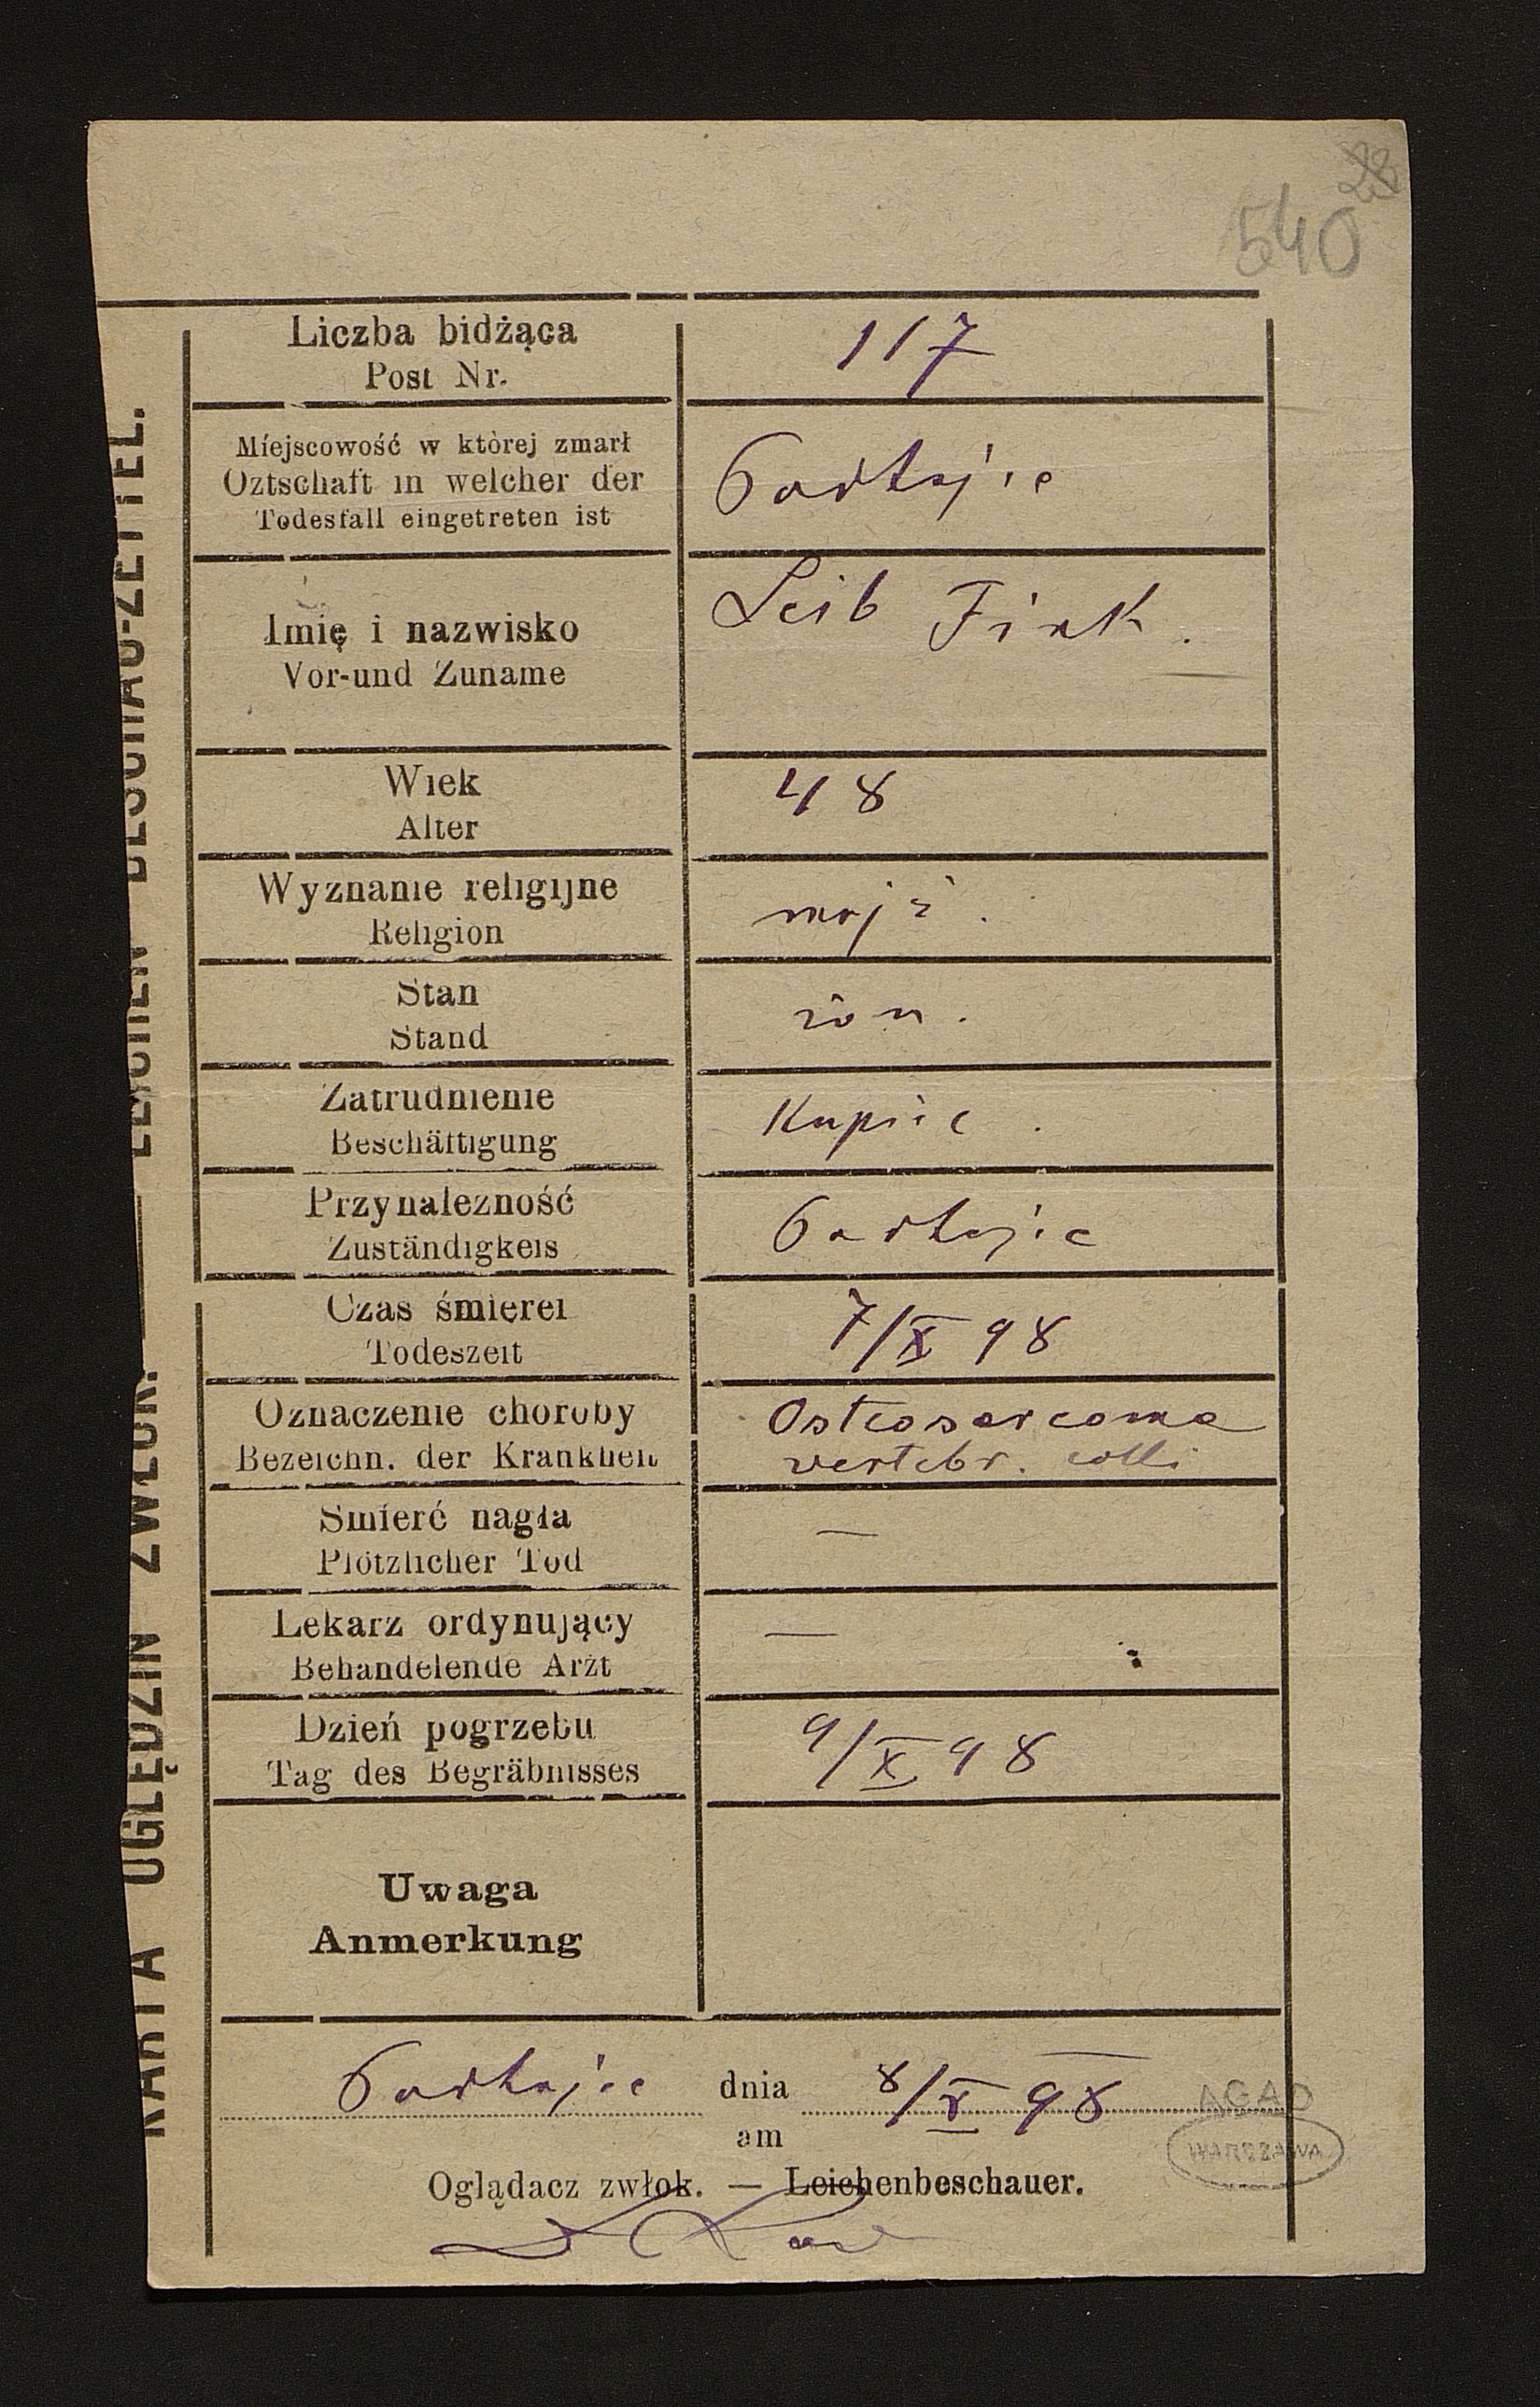 28
540
Liczba bidżąca
Post Nr.
117
Miejscowość w której zmarł
Oztschaft in welcher der
Todesfall eingetreten ist
Podhajce
Imię i nazwisko
Vor-und Zuname
Leib Fink.
Wiek
Alter
48
Wyznanie religijne
Religion
mojż.
Stan
Stand
żon.
Zatrudnienie
Beschäftigung
Kupiec.
Przynalezność
Zuständigkeis
Podhajce
Czas śmierei
Todeszeit
7/X 98
Oznaczenie choroby
Bezeichn. der Krankheit
Osteosarcoma
vertebr. colli
Smierć nagła
Plötzlicher Tod
—
Lekarz ordynujący
Behandelende Arzt
—
Dzień pogrzebu
Tag des Begräbnisses
9/X 98
Uwaga
Anmerkung
Podhajce dnia 8/X 98
am
Oglądacz zwłok. — Leichenbeschauer.
AGAD
WARSZAWA
KARTA OGLĘDZIN ZWŁOK. — LEICHEN BESCHAU-ZETTEL.